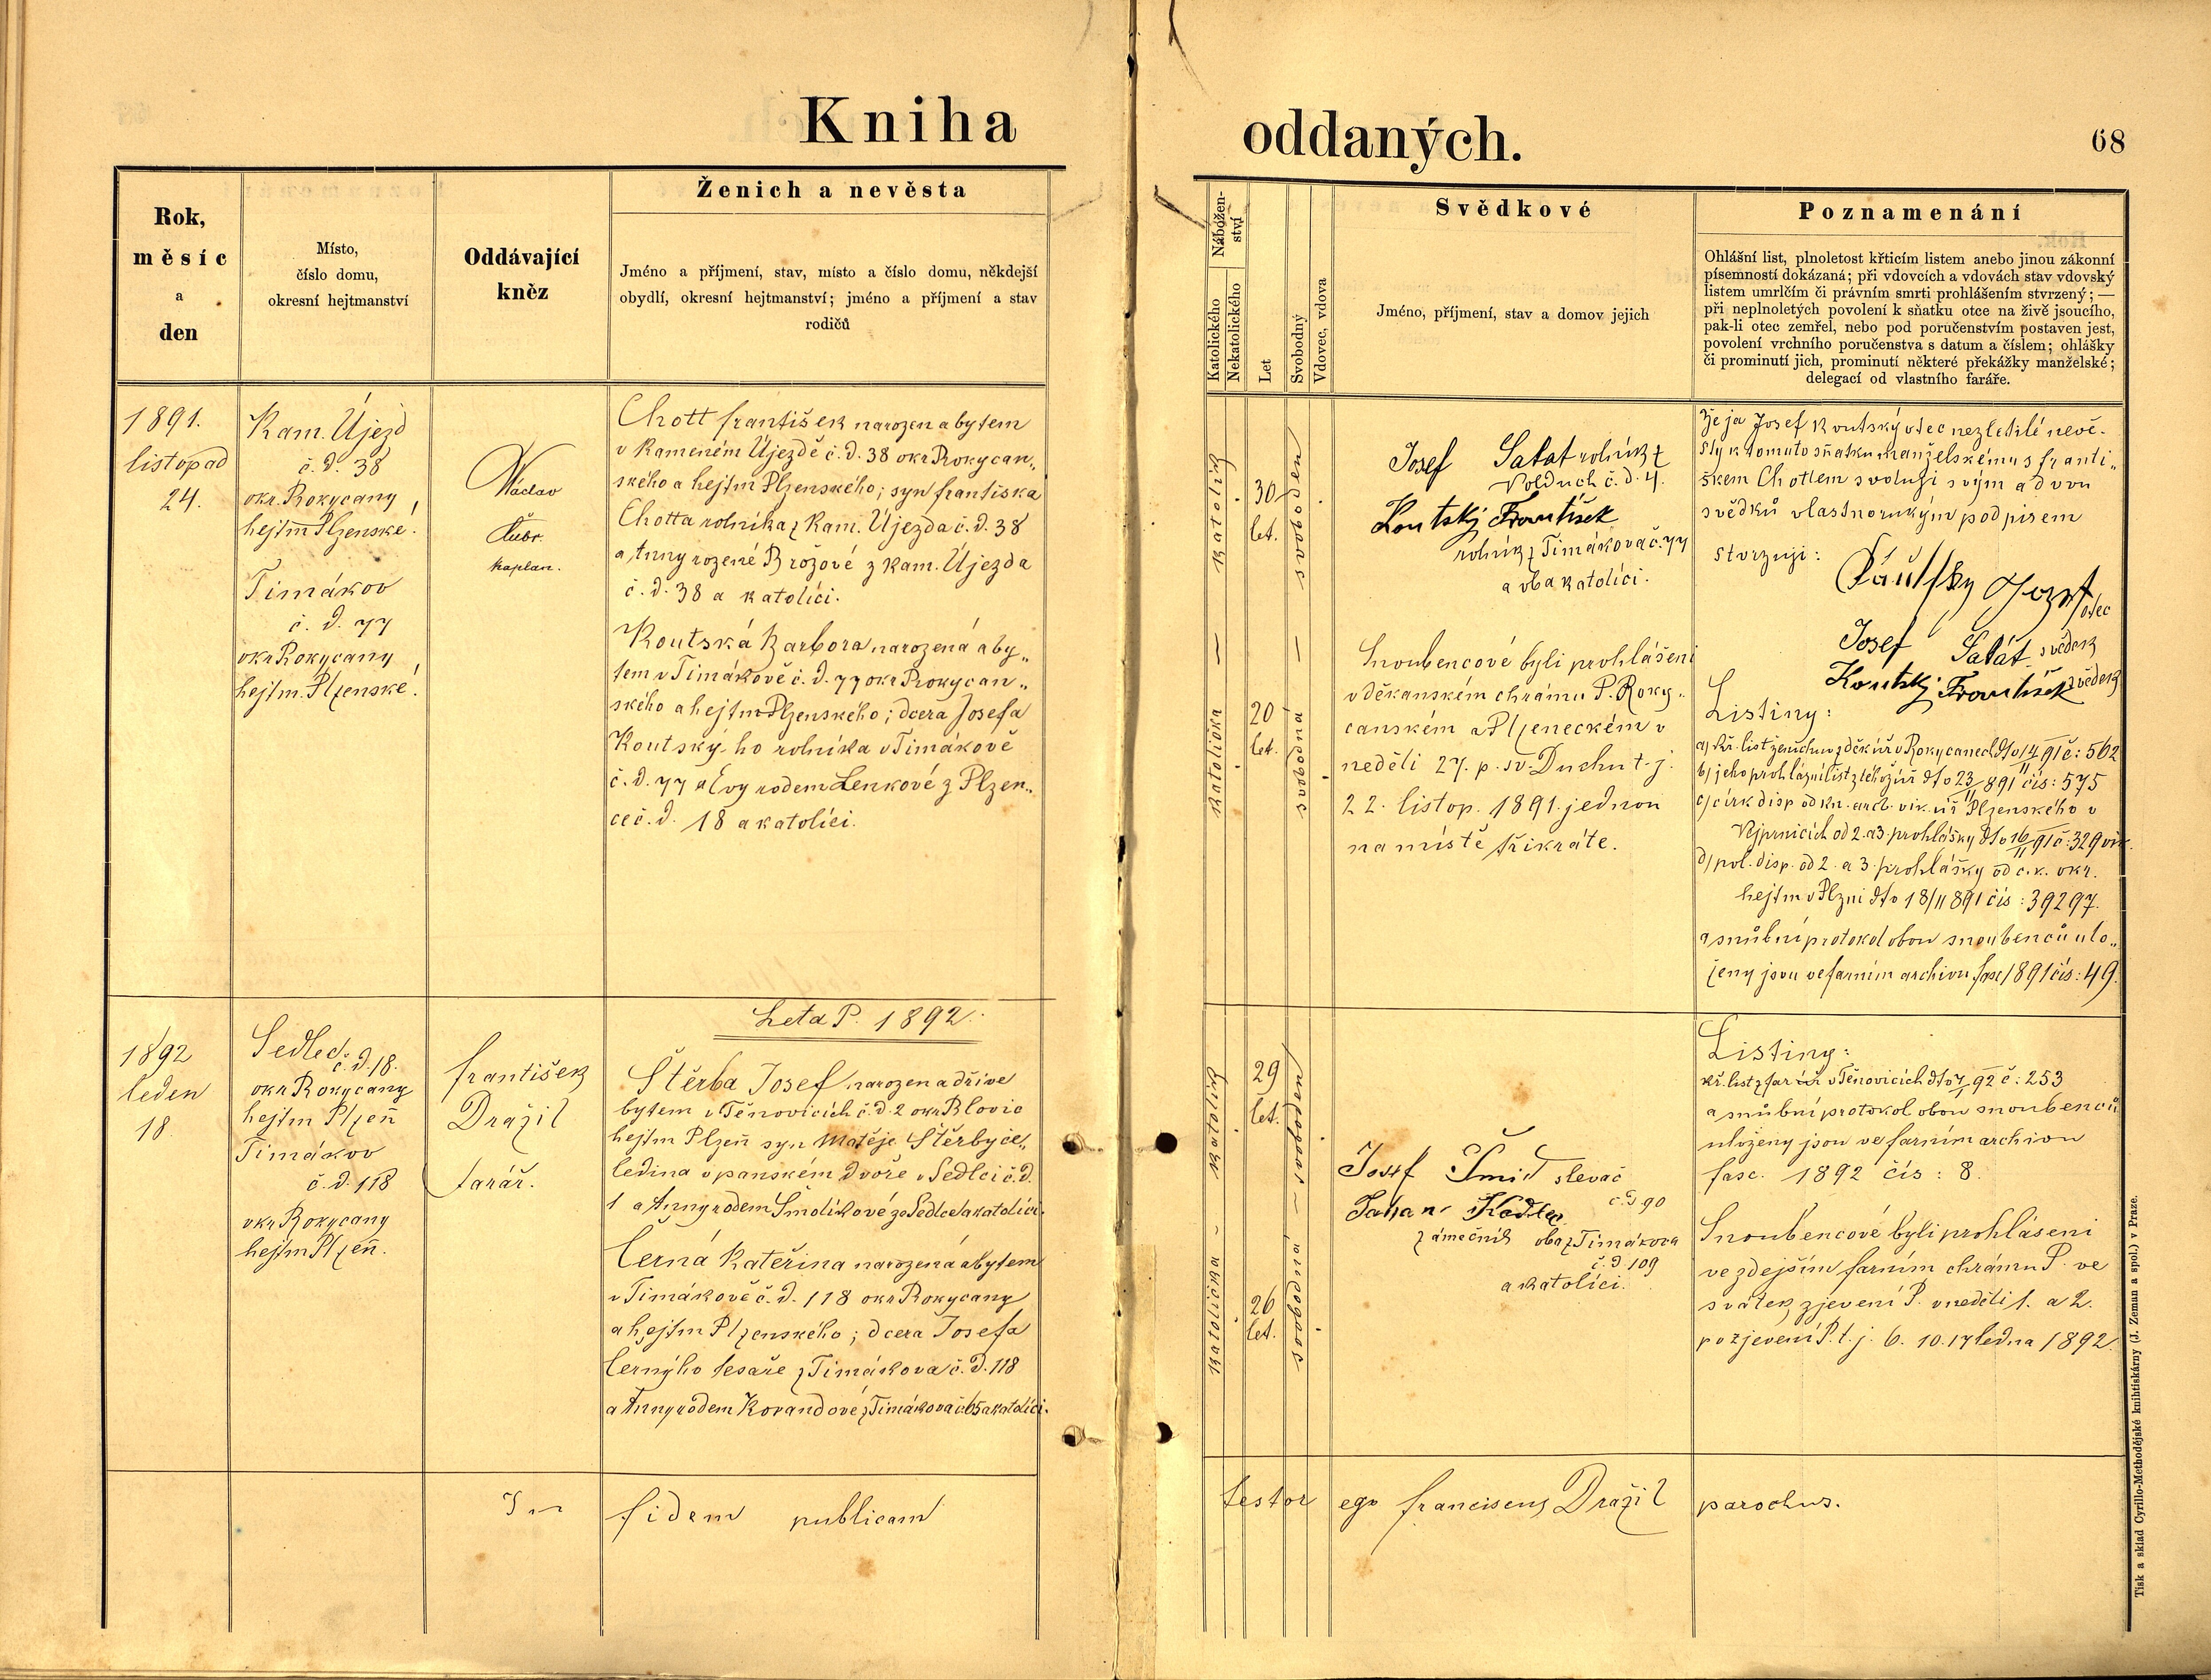 Kniha oddaných.
68
Rok,
měsíc
a
den
Místo,
číslo domu,
okresní hejtmanství
Oddávající
kněz
Ženich a nevěsta
Jméno a příjmení, stav, místo a číslo domu, někdejší
obydlí, okresní hejtmanství; jméno a příjmení a stav
rodičů
Nábožen-
ství
Katolického
Nekatolického
Let
Svobodný
Vdovec, vdova
Svědkové
Jméno, příjmení, stav a domov jejich
Poznamenání
Ohlášní list, plnoletost křticím listem anebo jinou zákonní
písemností dokázaná; při vdovcích a vdovách stav vdovský
listem umrlčím či právním smrti prohlášením stvrzený; —
při neplnoletých povolení k sňatku otce na živě jsoucího,
pak-li otec zemřel, nebo pod poručenstvím postaven jest,
povolení vrchního poručenstva s datum a číslem; ohlášky
či prominutí jich, prominutí některé překážky manželské;
delegací od vlastního faráře.
1891.
listopad
24.
Kam. Újezd
č. d. 38
okr Rokycany
hejtm Plzenské.
Timákov
č. d. 77
okr Rokycany
hejtm. Plzenské.
Václav
kaplan.
Chott František narozen a bytem
v Kameném Újezdě č. d. 38 okr Rokycan„
ského a hejtm Plzenského; syn Františka
Chotta rolníka z Kam. Újezda č. d. 38
a Anny rozené Brožové z Kam. Újezda
č. d. 38 a katolíci.
Koutská Barbora narozená a by„
tem v Timákově č. d. 77 okr Rokycan„
ského a hejtm Plzenského; dcera Josefa
Koutského rolníka v Timákově
č. d. 77 a Evy rodem Lenkové z Plzen„
ce č. d. 18 a katolíci.
katolík
30
let.
svoboden
katolička
20
let.
svobodna
Josef Salat rolník z
Volduch č. d. 4.
Koutský František
rolník z Timákova č. 77
a oba katolíci.
Snoubencové byli prohlášeni
v děkanském chrámu P. Roky„
canském a Plzeneckém v
neděli 27. p. sv. Duchu t. j.
22. listop. 1891. jednou
na místě třikráte.
Že já Josef Koutský otec nezletilé nevě-
sty k tomuto sňatku manželskému s Franti„
škem Chottem svoluji svým a dvou
svědků vlastnorukým podpisem
stvrzuji:
Josef Salát svědek
Koutský František svědek
Listiny:
a) kř. list ženichův z děk úř v Rokycanech dto 14/11 91 č: 562
b) jeho prohlášní list z téhož úř dto 23/11 891 čís: 575
c) círk disp od kn. arcb. vik. úř Plzenského v
Vejprnicích od 2. a 3. prohlášky dto 16/11 91 č: 329 vik.
d) pol. disp. od 2. a 3. prohlášky od c. k. okr.
hejtm v Plzni dto 18/11 891 čís: 39297.
a snubní protokol obou snoubenců ulo„
ženy jsou ve farním archivu fasc 1891 čís: 49.
Leta P. 1892.
1892
leden
18.
Sedlec
č. d. 18.
okr Rokycany
hejtm Plzeň
Timákov
č. d. 118
okr Rokycany
hejtm Plzeň.
František
Dražil
farář.
Štěrba Josef narozen a dříve
bytem v Těnovicích č. d. 2 okr Blovic
hejtm Plzeň syn Matěje Štěrby če„
ledína v panském dvoře v Sedlci č. d.
1 a Anny rodem Smolíkové ze Sedlce a katolíci.
Černá Kateřina narozená a bytem
v Timákově č. d. 118 okr Rokycany
a hejtm Plzenského; dcera Josefa
Černýho tesaře z Timákova č. d. 118
a Anny rodem Korandové z Timákova č. 65 a katolíci.
katolík
29
let.
svoboden
katolička
26
let.
svobodna
Josef Šmid slevač
č. d. 90
Johan Kadlec
zámečník oba z Timákova
č. d. 109
a katolíci.
Listiny:
kř. list z far úř v Těnovicích dto 7/1 92 č: 253
a snubní protokol obou snoubenců
uloženy jsou ve farním archivu
fasc. 1892 čís: 8.
Snoubencové byli prohlášeni
ve zdejším farním chrámu P. ve
svátek zjevení P. v neděli 1. a 2.
po zjevení P. t. j. 6. 10. 17 ledna 1892.
In fidem publicam testor ego Franciscus Dražil parochus.
Tisk a sklad Cyrillo-Methodějské knihtiskárny (J. Zeman a spol.) v Praze.